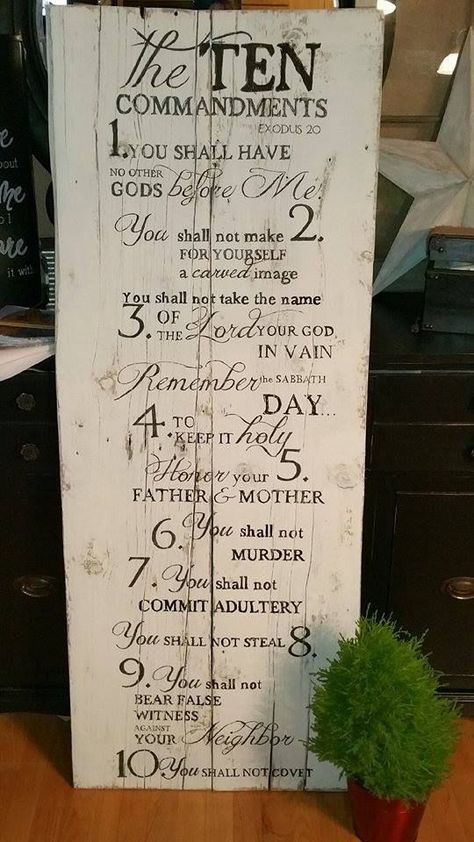 The TEN
COMMANDMENTS
EXODUS 20
1. YOU SHALL HAVE
NO OTHER
GODS before Me.
You shall not make 2.
FOR YOURSELF
a carved image
You shall not take the name
3. OF
THE Lord YOUR GOD,
IN VAIN
Remember the SABBATH
DAY...
4. TO
KEEP IT holy
Honor your 5.
FATHER & MOTHER
6. You shall not
MURDER
7. You shall not
COMMIT ADULTERY
You SHALL NOT STEAL 8.
9. You shall not
BEAR FALSE
WITNESS
AGAINST
YOUR Neighbor
10. You SHALL NOT COVET
Me
ore
it with